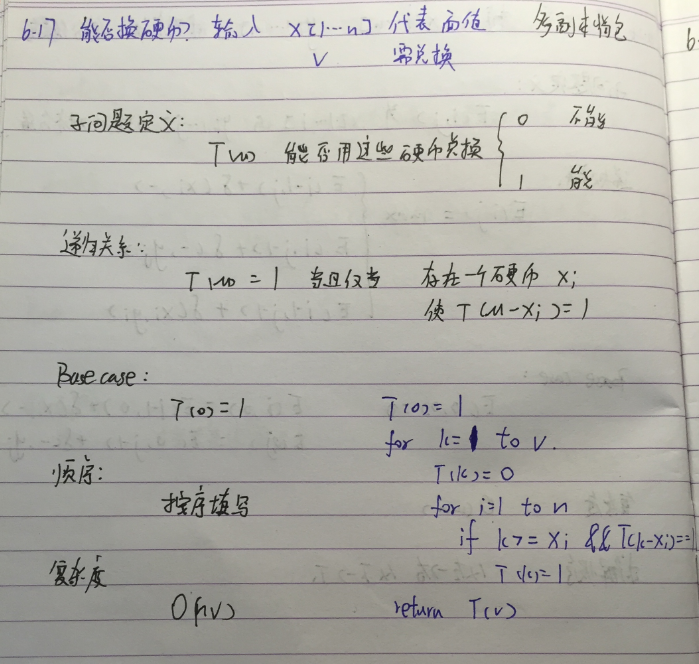 6.17 能否换硬币? 输入 x[1…n] 代表面值 多副本背包
v 需兑换
子问题定义:
T(u) 能否用这些硬币兑换 { 0 不能
1 能
递归关系:
T(u) = 1 当且仅当 存在一个硬币 xi
使 T(u-xi)=1
Base case:
T(0)=1
顺序:
按序填写
复杂度
O(nv)
T(0)=1
for k=1 to v.
T(k)=0
for i=1 to n
if k>=xi && T(k-xi)==1
T(k)=1
return T(v)
6.